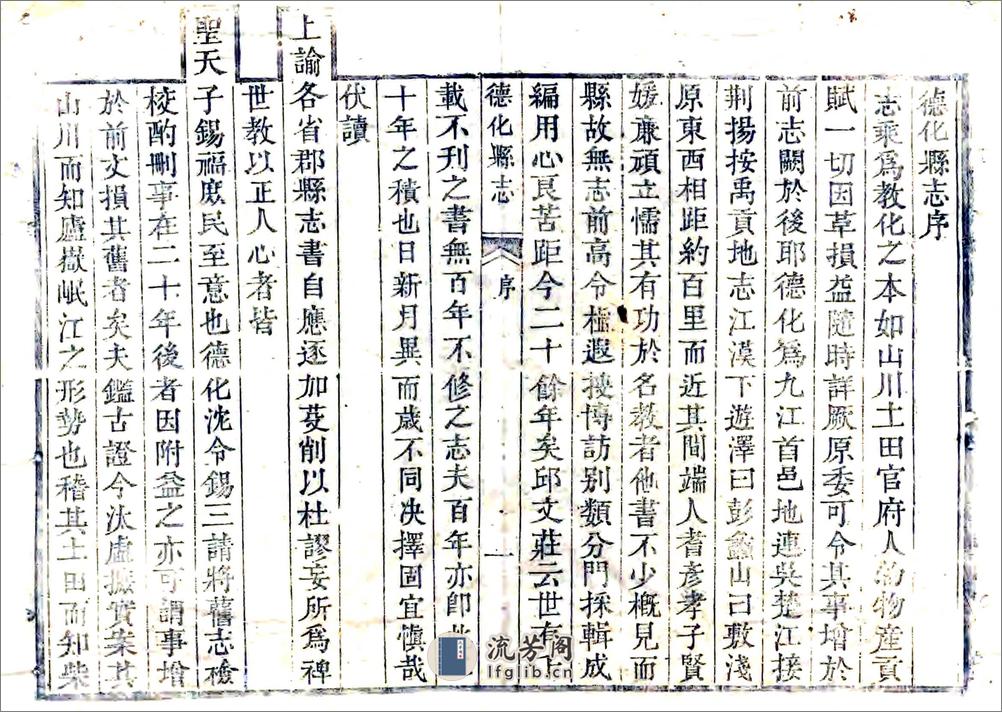 德化縣志序
志乘爲敎化之本如山川土田官府人物産貢
賦一切因草損益隨時詳厥原委可令其事增於
前志闕於後耶德化爲九江首邑地連吳楚江接
荆揚按禹貢地志江漢下遊澤曰彭蠡山曰敷淺
原東西相距約百里而近其間端人耆彥孝子賢
媛亷頑立懦其有功於名敎者他書不少槪見而
縣故無志前高令植遐搜博訪别類分門採輯成
編用心良苦距今二十餘年矣邱文莊云世有
德化縣志 序 一
載不刊之書無百年不修之志夫百年亦卽
十年之積也日新月異而歲不同决擇固宜愼哉
伏讀
上諭各省郡縣志書自應逐加芟削以杜謬妄所爲裨
世敎以正人心者皆
聖天子錫福庶民至意也德化沈令錫三請將舊志檢
校酌刪事在二十年後者因附益之亦可謂事增
於前文損其舊者矣夫鑑古證今汰虛摭實案其
山川而知廬嶽岷江之形勢也稽其土田而知柴
流芳阁
lfglib.cn